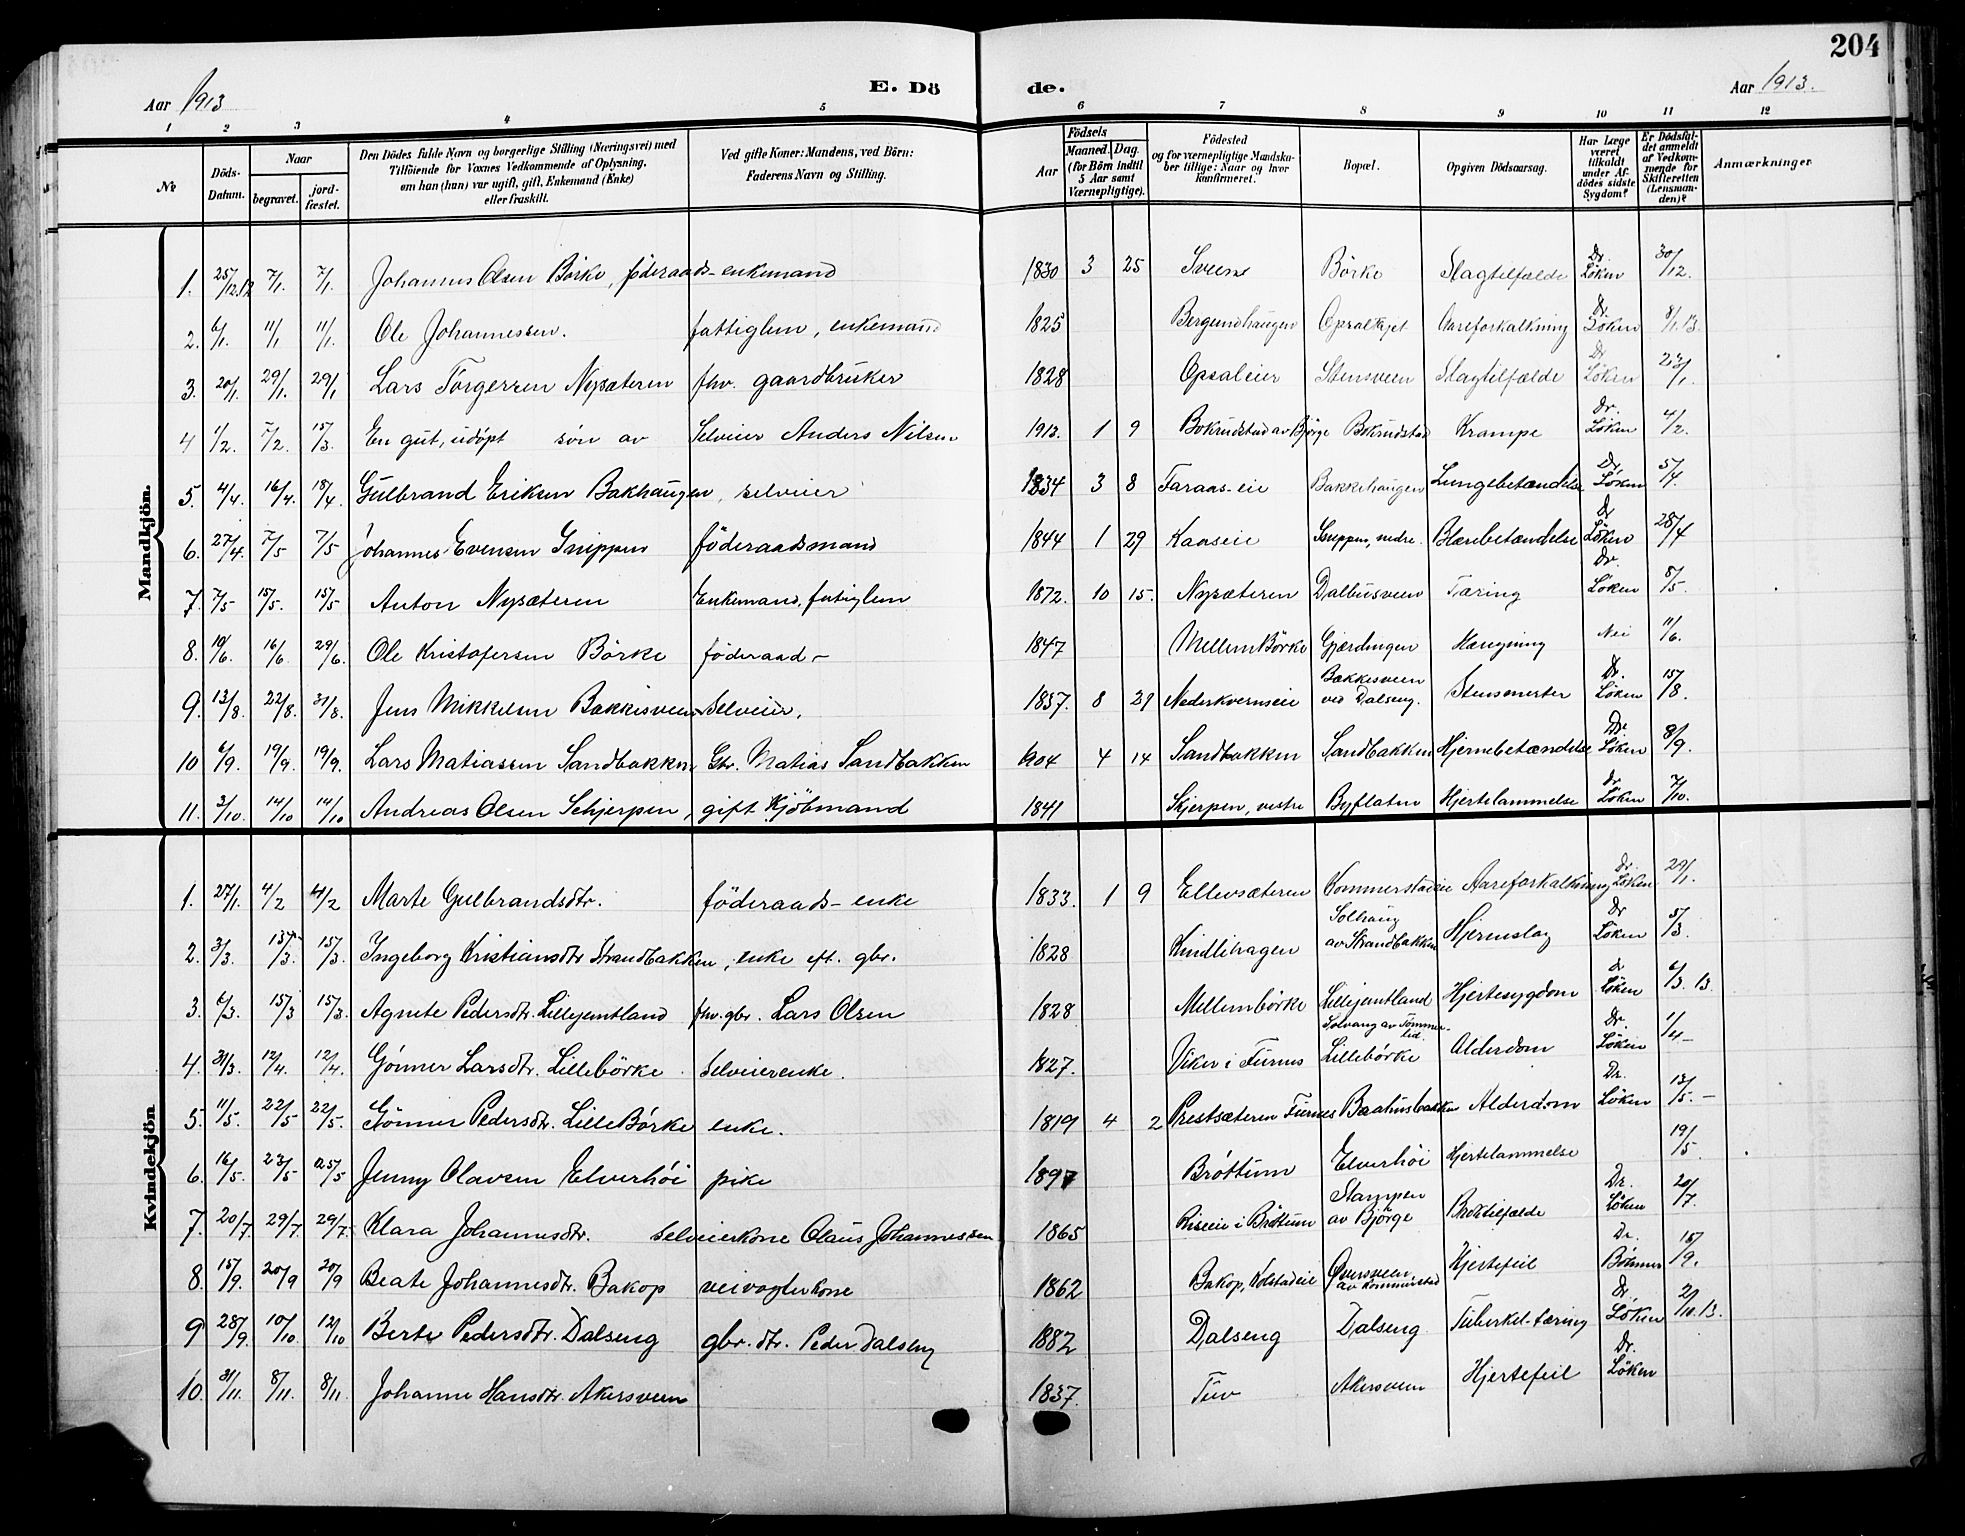 204
Aar 1913
E. Dö
de.
Aar 1913.
1 2 3 4 5 6 7 8 9 10 11 12
№
Döds-
Datum.
Naar
begravet.
jord-
fæstet.
Den Dödes fulde Navn og borgerlige Stilling (Næringsvei) med
Tilföiende for Voxnes Vedkommende af Oplysning,
om han (hun) var ugift, gift, Enkemand (Enke)
eller fraskilt.
Ved gifte Koner: Mandens, ved Börn:
Faderens Navn og Stilling.
Födsels
Aar
Maaned. Dag.
(for Börn indtil
5 Aar samt
Værnepligtige).
Födested
og for værnepligtige Mandska-
ber tillige: Naar og hvor
konfirmeret.
Bopæl.
Opgiven Dödsaarsag.
Har Læge
været
tilkaldt
under Af-
dödes sidste
Sygdom?
Er Dödsfal-
det anmeldt
af Vedkom-
mende for
Skifteretten
(Lensman-
den)?
Anmærkninger
Mandkjön.
1. 25/12.12 7/1. 7/1. Johannes Olsen Börke, föderaads-enkemand 1830 3 25 Sveen Börke Slagtilfælde Dr. Löken 30/12.
2. 6/1. 11/1 11/1. Ole Johannessen. fattiglem, enkemand 1825 Bergundhaugen Opsalhjet Aareforkalkning Dr. Löken 8/1.13.
3. 20/1. 29/1. 29/1 Lars Torgersen Nysæteren fhv. gaardbruker 1828 Opsaleier Stensveen Slagtilfælde Dr Löken 23/1.
4 1/2. 7/2. 15/3. En gut, udöpt sön av Selveier Anders Nilsen 1913. 1 9 Bokrudstad av Bjørge Bokrudstad Krampe Dr. Löken 4/2.
5. 4/4. 16/4. 18/4. Gulbrand Eriksen Bakhaugen, selveier 1834 3 8 Taraas-eie Bakkehaugen Lungebetændelse Dr. Löken 5/4.
6. 27/4. 7/5 7/5 Johannes Evensen Gruppen föderaadsmand 1844 1 29 Kaaseie Gruppen, nedre. Blærebetændelse Dr Löken 28/4
7. 7/5 15/5. 15/5 Anton Nysæteren Enkemand, fatiglem 1872. 10 15. Nysæteren Dalbusveen Tæring Dr. Löken 8/5.
8. 10/6. 16/6 29/6. Ole Kristofersen Börke föderaad- 1847 Mellem Börke Gjærdingen Hængning Nei 11/6.
9. 13/8. 22/8. 31/8. Jens Mikkelsen Bakkisveen Selveier. 1837. 8 29 Nederkvernseie Bakkesveen ved Dalseng. Stensmerter Dr. Löken 15/8.
10 6/9. 19/9. 19/9. Lars Matiassen Sandbakken Gbr. Matias Sandbakken 1904 4 14 Sandbakken Sandbakken Hjernebetændelse Dr. Löken 8/9.
11. 3/10. 14/10 14/10 Andreas Olsen Schjerpen, gift Kjöbmand 1841 Skjerpen, vestre Byflaten Hjertelammelse Dr Löken 7/10.
Kvindekjön.
1. 27/1. 4/2 4/2 Marte Gulbrandsdtr. föderaads-enke 1833. 1 9 Ellevsæteren Kommerstadeie Aareforkalkning Dr. Löken 29/1.
2. 3/3. 15/3. 15/3. Ingeborg Kristiansdtr Strandbakken, enke eft. gbr. 1828 Kindlihagen Solhaug av Strandbakken Hjerneslag Dr Löken 5/3.
3. 6/3. 15/3 15/3. Agnete Pedersdtr. Lillejemtland fhv. gbr. Lars Olsen 1828 Mellembörke Lillejemtland Hjertesygdom Dr Löken 6/3.13.
4. 31/3. 12/4. 12/4. Gönner Larsdtr. Lillebörke selveierenke. 1827. Viker i Furnes Solvang av Tömmerlid. Lillebörke Alderdom Dr. Löken 1/4-
5. 11/5. 22/5 22/5. Gönner Pedersdtr. Lille Börke enke. 1819 4 2 Prestsæteren Furnes Baahusbakken Alderdom Dr. Löken 13/5. -
6. 16/5. 23/5 25/5 Jenny Olavsen Elverhöi pike 1897 Bröttum Elverhöi Hjertelammelse 19/5.
7. 20/7 29/7. 29/7. Klara Johannesdtr. selveierkone Olaus Johannessen 1865 Riseie i Bröttum Stampen av Bjørge Dr. Löken 20/7.
8. 15/9. 20/9 20/9 Beate Johannesdtr. Bakop veivogterkone 1862 Bakop, Kolstadeie Översveen av Kommerstad Hjertefeil Dr. Böhmer 15/9.
9 28/9. 10/10 12/10 Berte Pedersdtr. Dalseng gbr. dtr. Peder Dalseng 1882 Dalseng Dalseng Tuberkel-tæring Dr. Löken 2/10.13.
10. 31/11. 8/11. 8/11. Johanne Hansdtr. Akersveen 1837. Tuv Akersveen Hjertefeil Dr. Löken